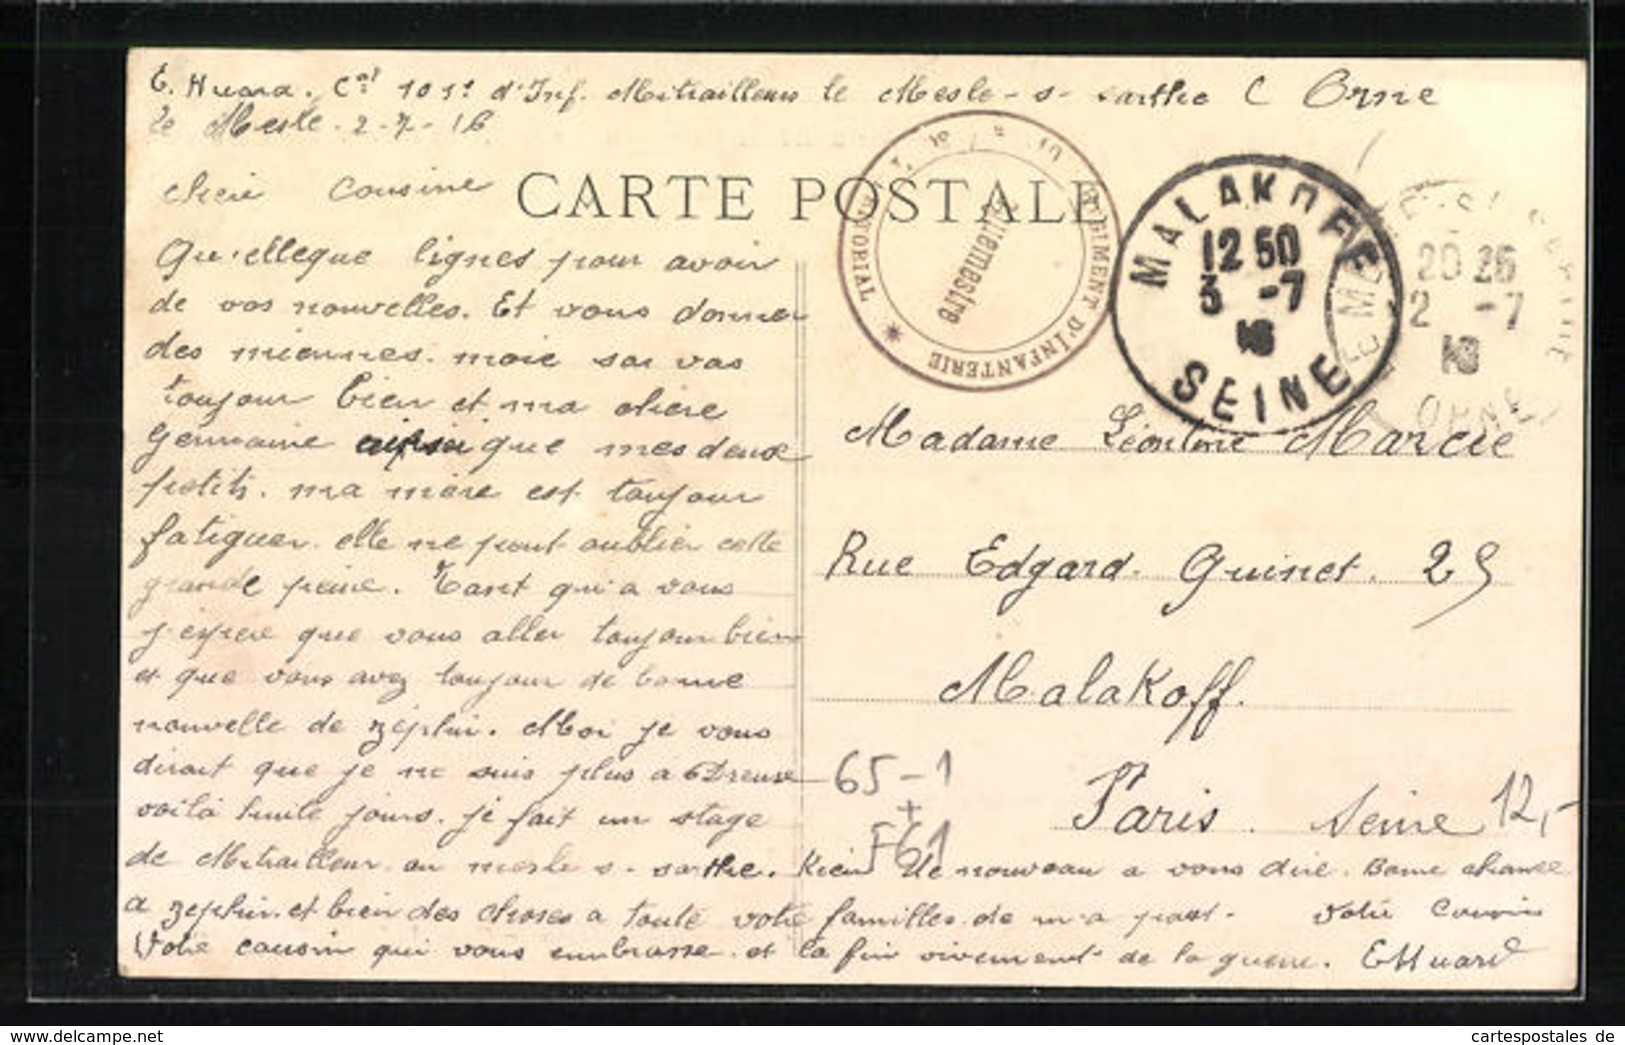 E. Huard. Cal 101e d'Inf. Mitrailleurs le Mesle-s-sarthe Orne
le Mesle. 2-7-16
chère cousine
CARTE POSTALE
Qu'elleque lignes pour avoir
de vos nouvelles. Et vous donner
des miennes. moie sas vas
toujour bien et ma chère
Germaine ainsi que mes deux
petits. ma mère est toujour
fatiguer. elle ne peut oublier cette
grande peine. Tant qu'a vous
j'espere que vous aller toujour bien
et que vous avez toujour de bonne
nouvelle de zéphir. Moi je vous
dirait que je ne suis plus a Dreux
voilà huite jours. je fait un stage
de Mitrailleur au mesle s-sarthe. Rien de nouveau a vous dire. Bonne chance
a zephir. et bien des choses a toute votre familles. de m'a part. Votre Cousin
Votre cousin qui vous embrasse. et la fin vivement de la guerre. EHuard
TERRITORIAL RÉGIMENT D'INFANTERIE
Vaguemestre
MALAKOFF
12 50
3 -7
16
SEINE
LE M
20 26
2 -7
16
ORNE
Madame Léontine Marcie
Rue Edgard. Quinet. 25
Malakoff.
Paris. Seine
65-1
+
F61
12,-
cartespostales.de